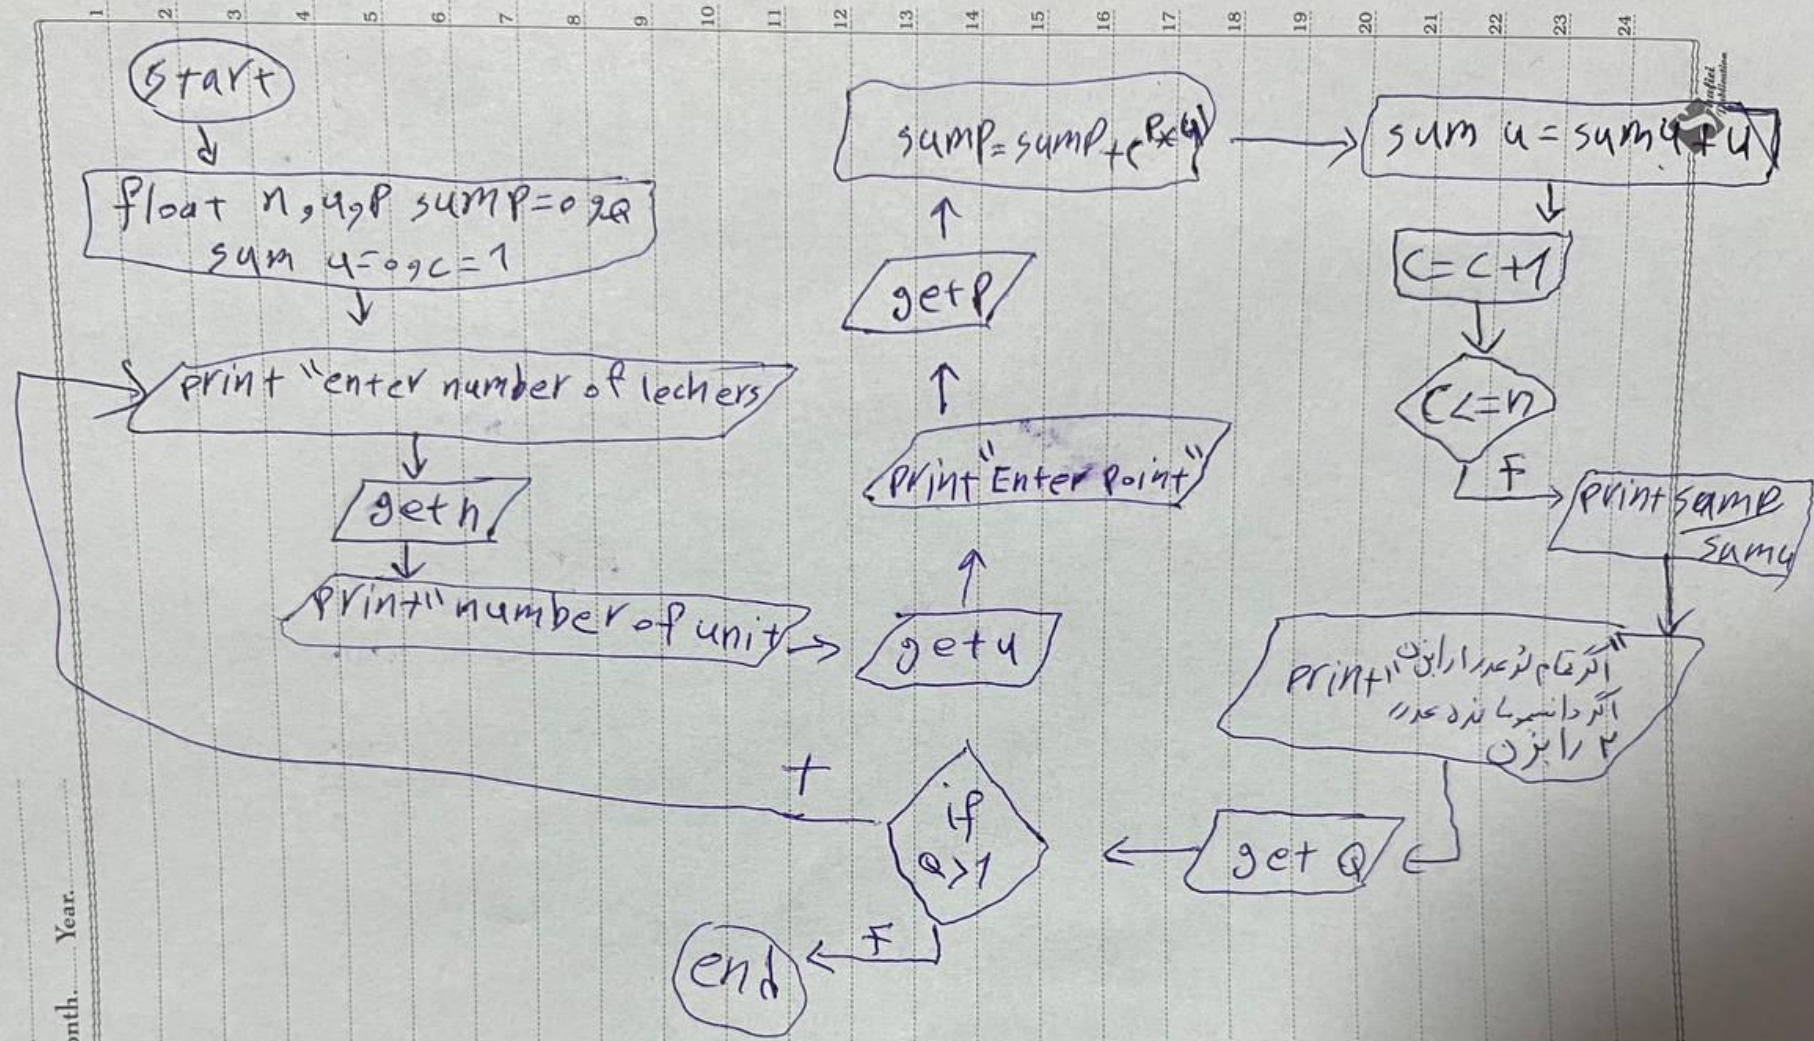 1 2 3 4 5 6 7 8 9 10 11 12 13 14 15 16 17 18 19 20 21 22 23 24
start
float n,u,p sump=0,Q
sum u=0,c=1
print "enter number of lechers
get n
print" number of unit
get u
print "Enter Point"
get p
sump=sump+(p*u)
sum u = sum u + u
c=c+1
c<=n
F
print sump
sumu
print" اگر تمام شد عدد 1 را بزن"
اگر دانشجو مانده عدد
۲ را بزن
get Q
if
Q>1
T
F
end
Month. Year.